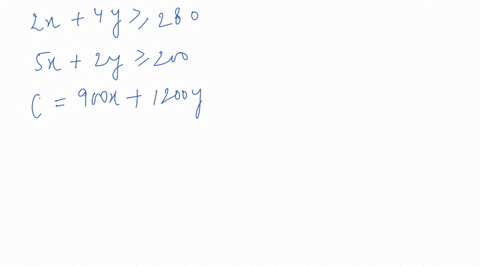 2x + 4y ≥ 280
5x + 2y ≥ 200
C = 900x + 1200y